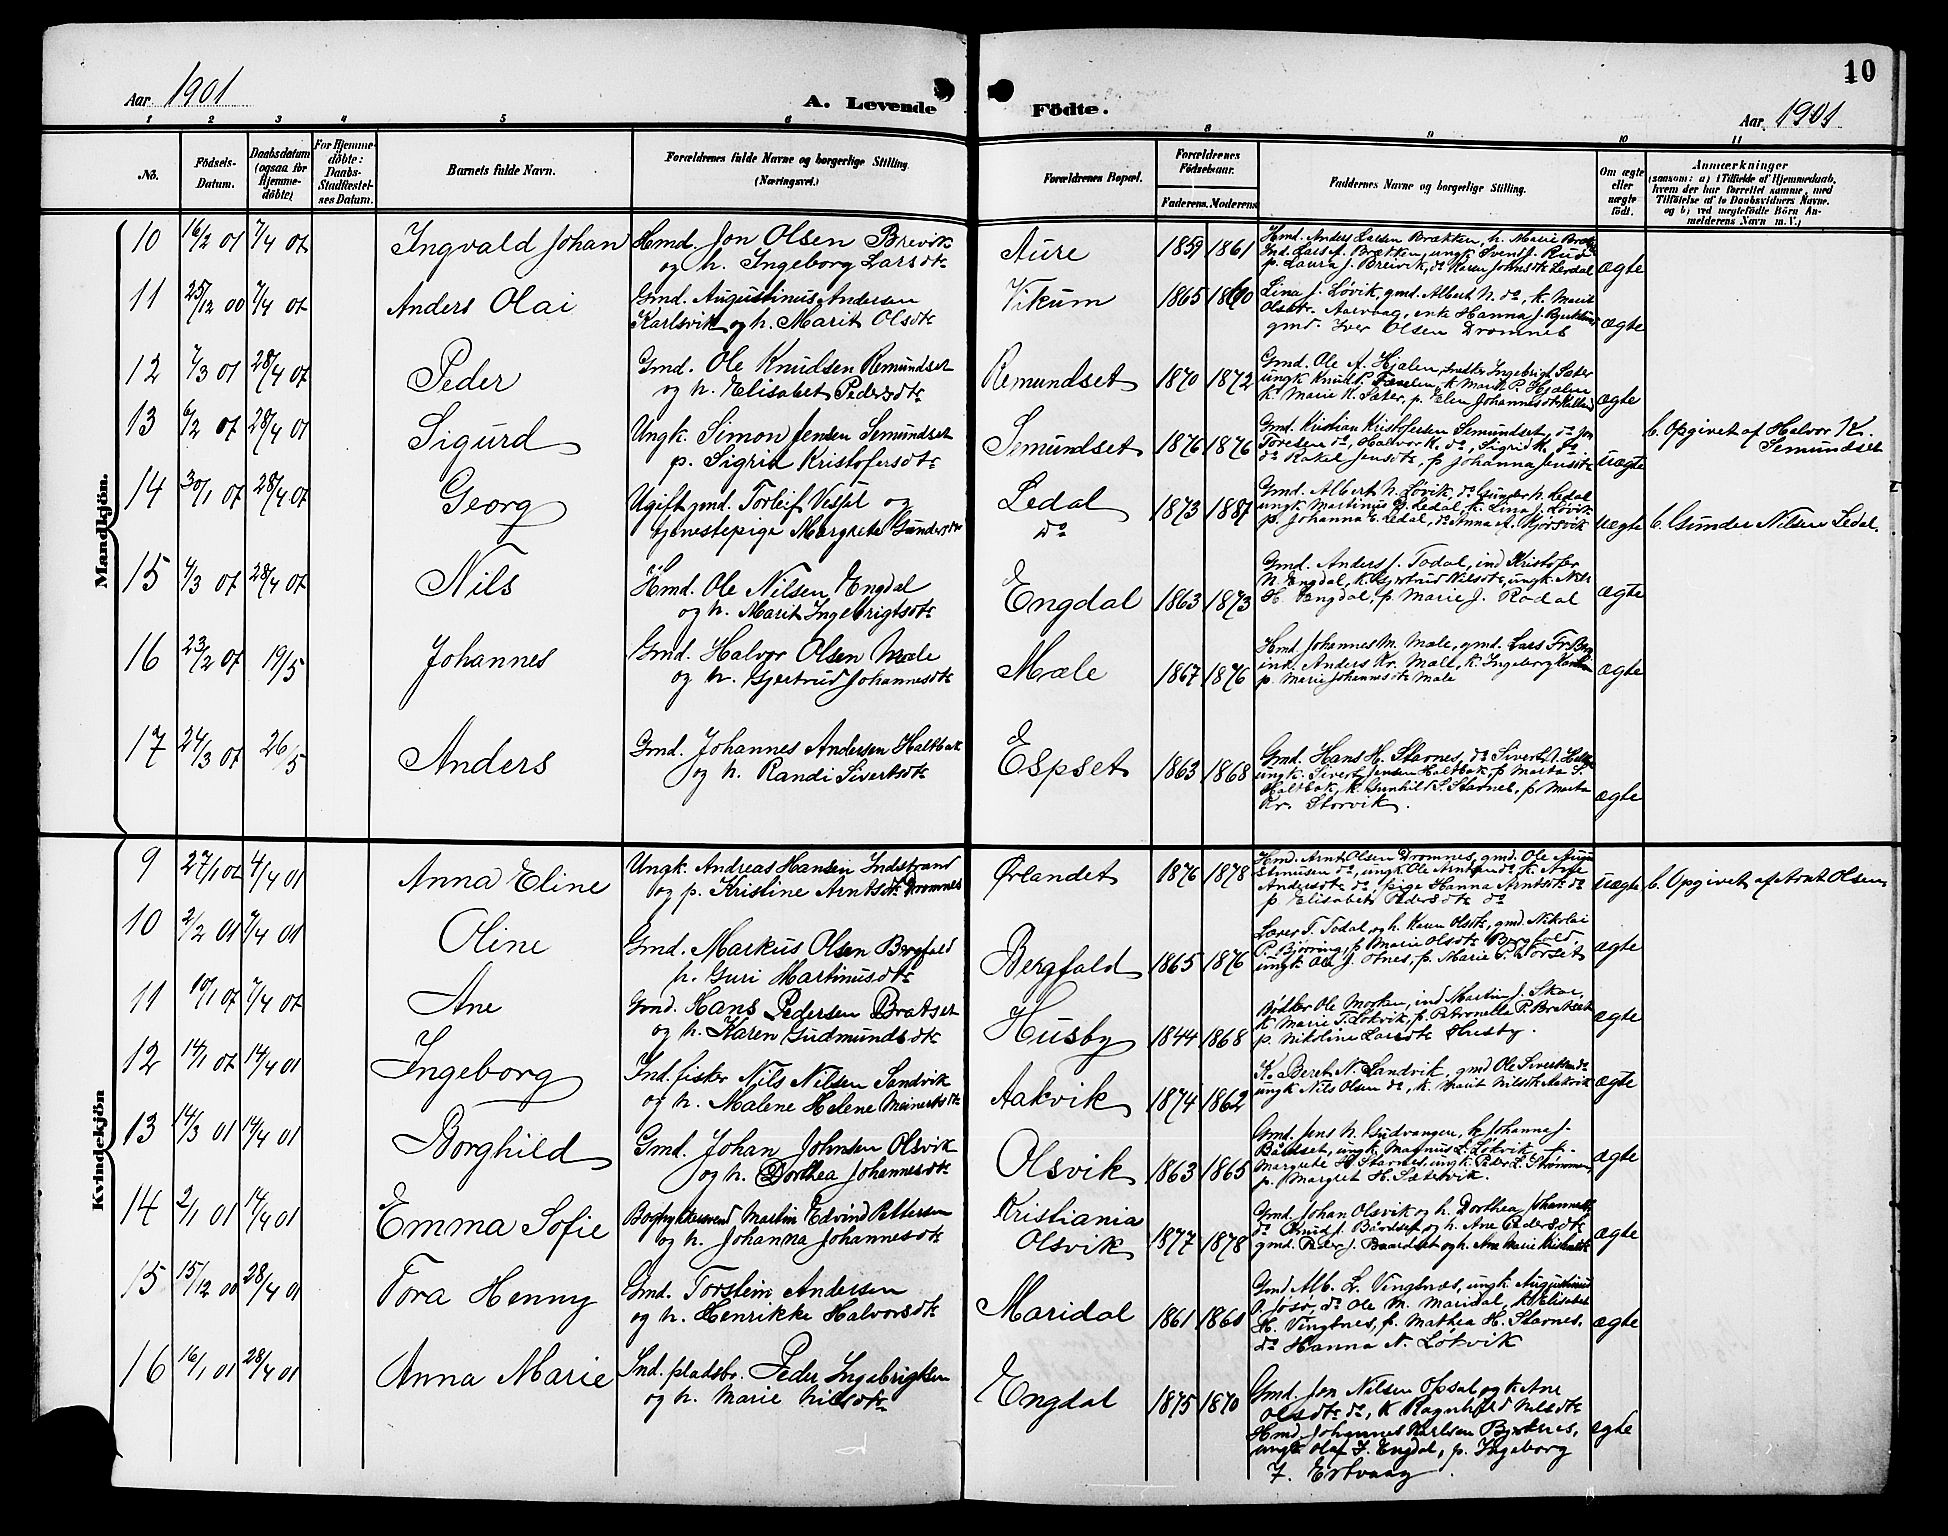 Aar 1901
A. Levende Födte.
Aar 1901
10
1 2 3 4 5 6 8 9 10 11
No.
Födsels-Datum.
Daabsdatum (ogsaa for Hjemme-döbte)
For Hjemme-döbte: Daabs-Stadfæstel-ses Datum.
Barnets fulde Navn.
Forældrenes fulde Navne og borgerlige Stilling. (Næringsvei.)
Forældrenes Bopæl.
Forældrenes Födselsaar.
Faderens. Moderens.
Faddernes Navne og borgerlige Stilling.
Om ægte eller uægte födt.
Anmærkninger
(saasom: a) i Tilfælde af Hjemmedaab,
hvem der har forrettet samme, med
Tilföielse af to Daabsvidners Navne.
og b) ved uægtefödte Börn An-
melderens Navn m. V.)
Mandkjön.
10 16/2 01 7/4 01 Ingvald Johan Hmd. Jon Olsen Brevik
og h. Ingeborg Larsdtr
Aure 1859 1861 Hmd. Anders Larsen Brækken, h. Marie
Ind. Lars J. Brækken, ungk Svend J. Rud
p. Laura J. Breivik, do Karen Johnsdtr Lerdal ægte
11 25/12 00 7/4 01 Anders Olai Gmd. Augustinus Andersen
Karlsvik og h. Marit Olsdtr
Vikum 1865 1860 Lina J. Løvik, gmd. Albert N. do, k. Marit
Olsdtr. Aarvaag, enk Hanna J.
gmd. Iver Olsen Dromnes ægte
12 7/3 01 28/4 01 Peder Gmd. Ole Knudsen Remundset
og h. Elisabet Pedersdtr
Remundset 1870 1872 Gmd. Ole A. Hjalen, Ingebrigt Sæter
ungk Knud P. k. Marit P. Hjalen
k. Marie K. Sæter, p. Elen Johannesdtr ægte
13 6/2 01 28/4 01 Sigurd Ungk. Simon Jensen Semundset
p. Sigrid Kristofersdtr
Semundset 1876 1876 Gmd. Kristian Kristofersen Semundset, do Jon
Toresen do, Halvor K. do, Sigrid K. do
do Rakel Jensdtr, p Johanna Jensdtr uægte b. Opgivet af Halvor K.
Semundset
14 30/1 01 28/4 01 Georg Ugift gmd. Torleif Vessel og
tjenestepige Margrete Gundersdtr
Ledal
do 1873 1887 Gmd. Albert N. Løvik, do Gunder N. Ledal
ungk Martinus G. Ledal, k. Lina J. Løvik
p. Johanna E. Ledal, do Anna A. Kjørsvik uægte b. Gunder Nilsen Ledal.
15 4/3 01 28/4 01 Nils Hmd. Ole Nilsen Engdal
og h. Marit Ingebrigtsdtr
Engdal 1863 1873 Gmd. Anders J. Todal, ind Kristofer
N. Engdal, k. Gjertrud Nilsdtr, ungk. Nils
H. Engdal, p. Marie J. Rodal ægte
16 23/2 01 19/5 Johannes Gmd. Halvor Olsen Mæle
og h. Gjertrud Johannesdtr
Mæle 1867 1876 Hmd. Johannes M. Mæle, gmd. Lars Fr.
ind. Anders Kr. Mæle, k. Ingeborg
p. Marie Johannesdtr Mæle ægte
17 24/3 01 26/5 Anders Gmd. Johannes Andersen Haltbak
og h. Randi Sivertsdtr
Espset 1863 1868 Gmd. Hans H. Stavnes, do Sivert A.
ungk. Sivert Jensen Haltbak, p Marta S.
Haltbak, k. Gunhild S. Stavnes, p. Marta
Kr. Storvik. ægte
Kvindekjön
9 27/1 01 4/4 01 Anna Eline Ungk. Andreas Hansen Indstrand
og p. Kristine Arntsdtr Dromnes
Ørlandet 1876 1878 Hmd. Arnt Olsen Dromnes, gmd. Ole
do, ungk Ole Arntsen do k.
Andersdtr do, pige Hanna Arntsdtr do
p Elisabet Pedersdtr do uægte b. Opgivet af Arnt Olsen.
10 2/2 01 7/4 01 Oline Gmd. Markus Olsen Bergfald
h. Guri Martinusdtr
Bergfald 1865 1876 Lærer T. Todal, og h. Karen Olsdtr, gmd. Nikolai
P. Bjørring, p Marie Olsdtr Bergfald,
ungk Ole J. Otnes, p. Marie T. Torset ægte
11 10/1 01 7/4 01 Ane Gmd. Hans Pedersen Bratset
og h. Karen Gudmundsdtr
Husby 1844 1868 Bødker Ole Morken, ind Martin J. Skar,
k Marie T. Løkvik, p. Petronelle P. Bratset
p. Nikoline Larsdtr Husby. ægte
12 14/1 01 14/4 01 Ingeborg Ind. fisker Nils Nilsen Sandvik
og h. Malene Helene Meinertsdtr
Aakvik 1874 1862 K. Beret N. Sandvik, gmd Ole Sivertsen do
ungk Nils Olsen do, k. Marit Nilsdtr Aakvik ægte
13 14/3 01 14/4 01 Borghild Gmd. Johan Johnsen Olsvik
og h. Dorthea Johannesdtr
Olsvik 1863 1865 Gmd. Jens N. Gudvangen, k Johanna J.
Bårdset, ungk. Magnus L. Løkvik
Margrete H. Stavnes, ungk. Peder L. Strømmen
p. Margret H. Sætervik. ægte
14 2/1 01 14/4 01 Emma Sofie Bogtrykkersvend Martin Edvind Pettersen
og h. Johanna Johannesdtr
Kristiania
Olsvik 1877 1878 Gmd. Johan Olsvik og h. Dorthea Johannesdtr
do Knud J. Bårdset og h. Ane Pedersdtr
gmd. Peder J. Baardset og h. Ane Marie ægte
15 15/12 00 28/4 01 Tora Henny Gmd. Torstein Andersen
og h. Henrikke Halvorsdtr
Maridal 1861 1860 Gmd Alb. L. Vingnes, ungk. Augustinus
O. Jøsø, do Ole M. Maridal, k Elisabet
H. Vingnes, p. Mathea H. Stavnes.
do Hanna N. Løkvik ægte
16 16/1 01 28/4 01 Anna Marie Ind. pladsbr. Peder Ingebrigtsen
og h. Marie Nilsdtr
Engdal 1875 1870 Gmd. Jon Nilsen Opsal og k Ane
Olsdtr do, k Ragnhild Nilsdtr
Hmd. Johannes Karlsen Bjerknes,
ungk Olaf J. Engdal, p. Ingeborg
J. Ertvaag. ægte